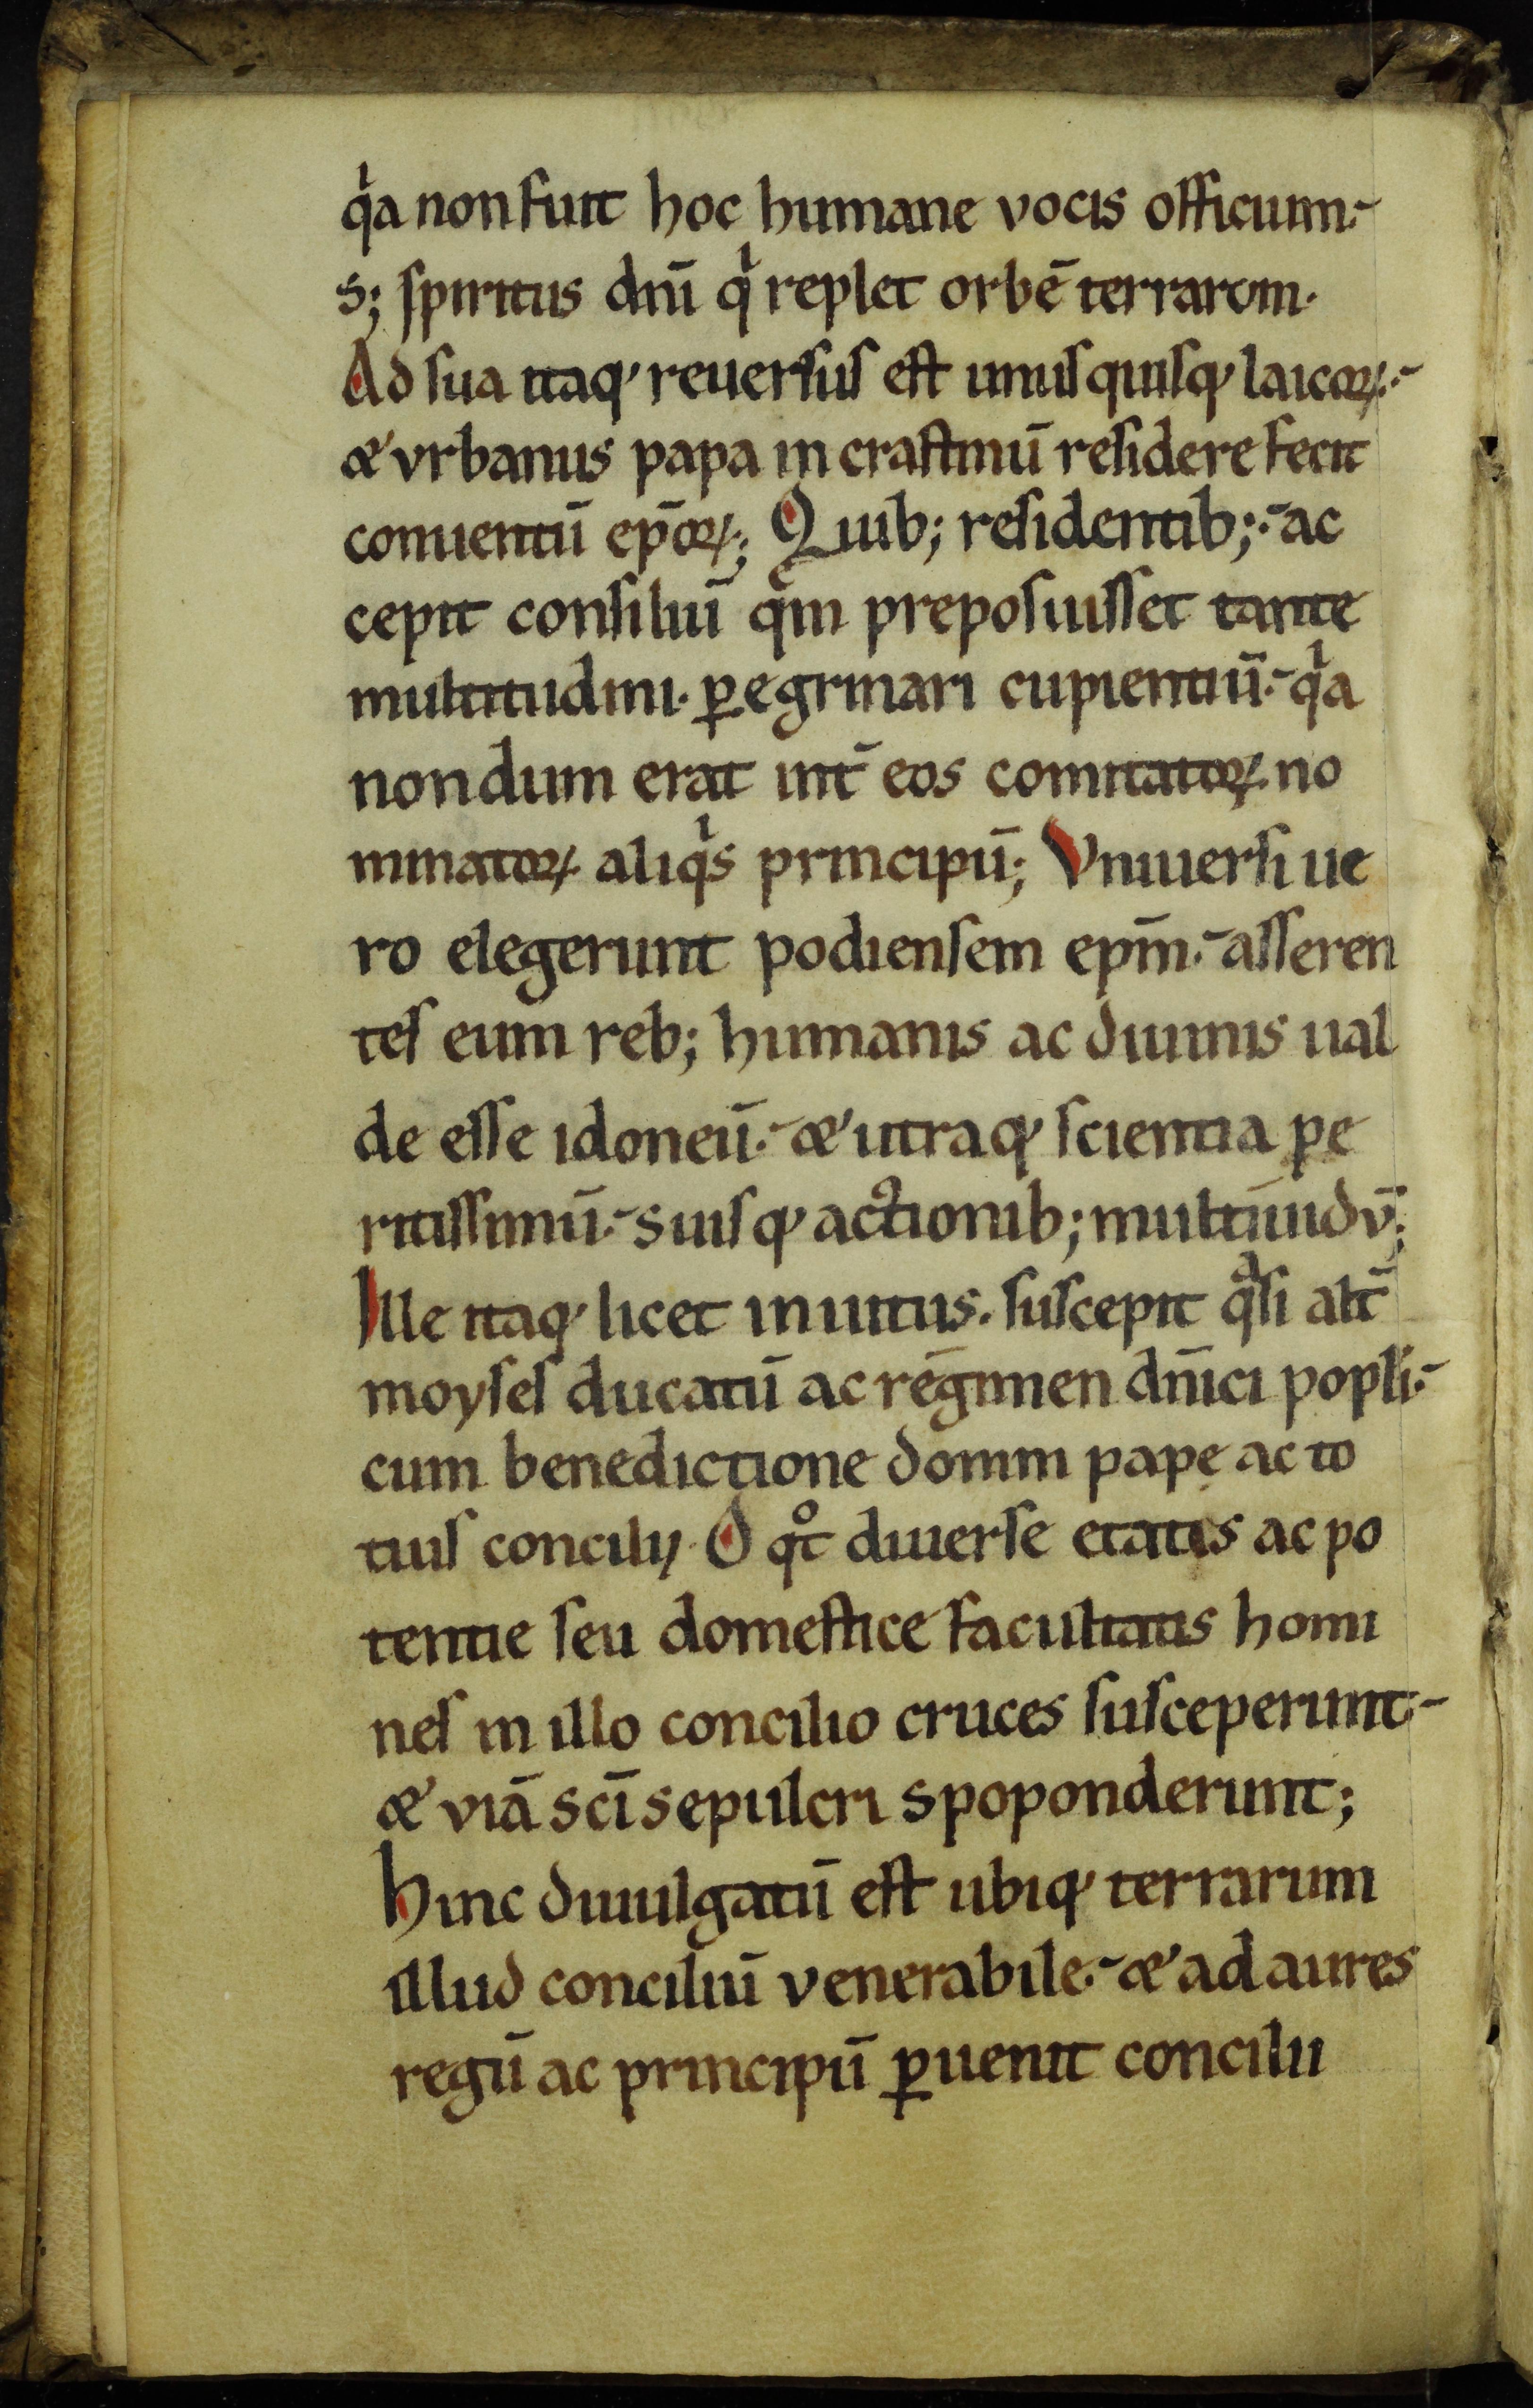 qͥa non fuit hoc humane vocis officium.
s; ſpiritus dn̄i qͥ replet orbē terrarom.
Ad ſua itaq; reuerſuſ eſt unuſquiſq; laicoꝝ.
& vrbanus papa in craſtinū reſidere fecit
conuentū ep̄oꝝ; Quib; reſidentib; ac
cepit conſiliū quē̄m prepoſuiſſet tante
multitudini. ꝑegrinari cupientiū. qͥa
nondum erat int̄ eos comitatoꝝ. no
minatoꝝ aliqͥs principū; Vniuerſi ue
ro elegerunt podienſem ep̄m. aſſeren
teſ eum reb; humanis ac diuinis ual
de eſſe idoneū. & utraq; ſcientia pe
ritiſſimū. Suiſq; actionib; multiuidv̄;
Ille itaq; licet inuitus. ſuſcepit qᵃſi alt̄
moyſeſ ducatū ac rēgimen dn̄ici popl̄i.
cum benedictione domini papę ac to
tiuſ concilij. O qͦt diuerſe etatis ac po
tentie ſeu domeſtice facultatis homi
neſ in illo concilio cruces ſuſceperunt.
& viā sc̄i sepulcri spoponderunt;
Hinc diuulgatū eſt ubiq; terrarum
illud conciliū venerabile. & ad aures
regū ac principū ꝑuenit concilii